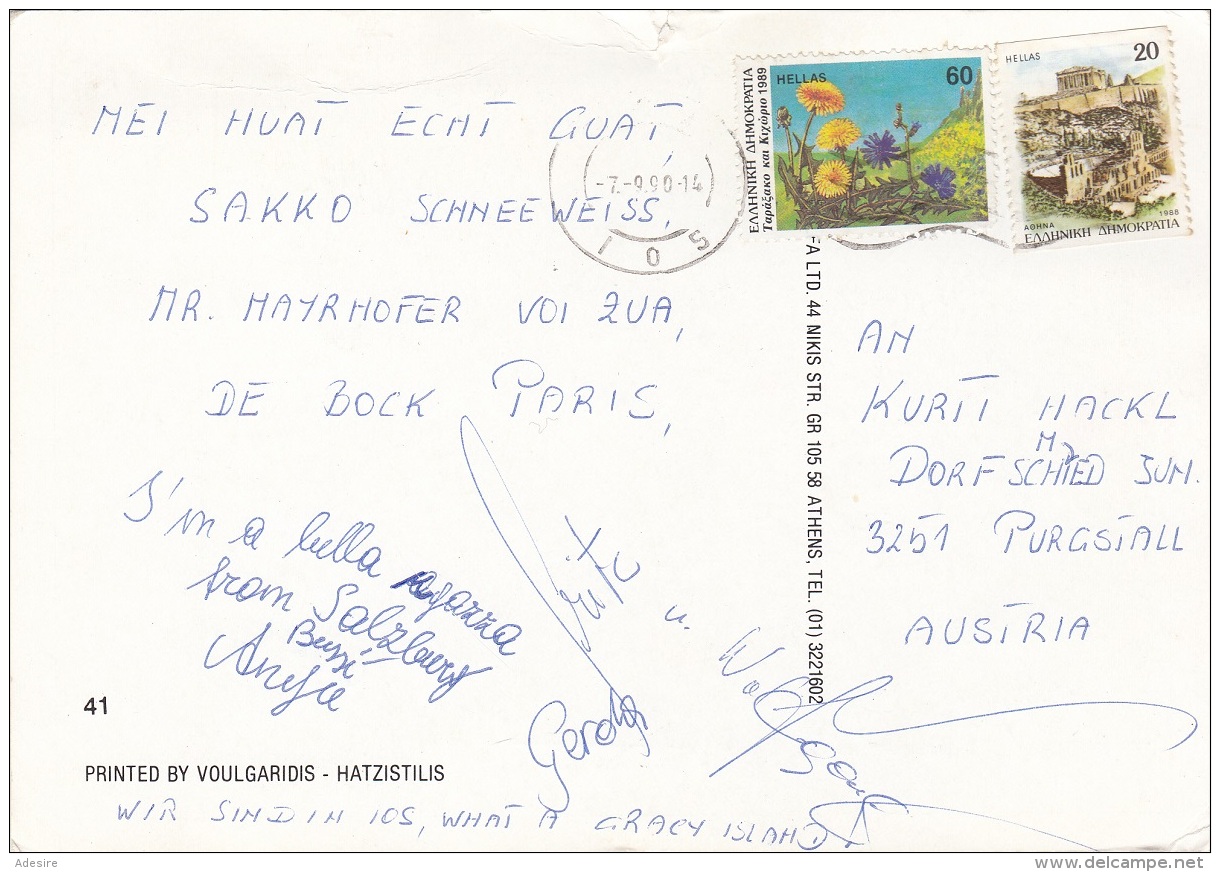 MEI HUAT ECHT GUAT,
SAKKO SCHNEEWEISS,
MR. MAYRHOFER VOI ZUA,
DE BOCK PARIS,
I'm a bella ragazza
from Salzburg
Bussi
Fritz u. Wolfgang
Gerda
41
PRINTED BY VOULGARIDIS - HATZISTILIS
WIR SIND IN IOS, WHAT A GRACY ISLAND
-7.-9.90-14
IOS
HELLAS 60
ΕΛΛΗΝΙΚΗ ΔΗΜΟΚΡΑΤΙΑ
Ταράξακο και Κιχώριο 1989
HELLAS 20
1988
ΑΘΗΝΑ
ΕΛΛΗΝΙΚΗ ΔΗΜΟΚΡΑΤΙΑ
LTD. 44 NIKIS STR. GR 105 58 ATHENS, TEL. (01) 3221602
AN
KURTI HACKL
DORF SCHMIED JUN.
3251 PURGSTALL
AUSTRIA
Adesire
www.delcampe.net